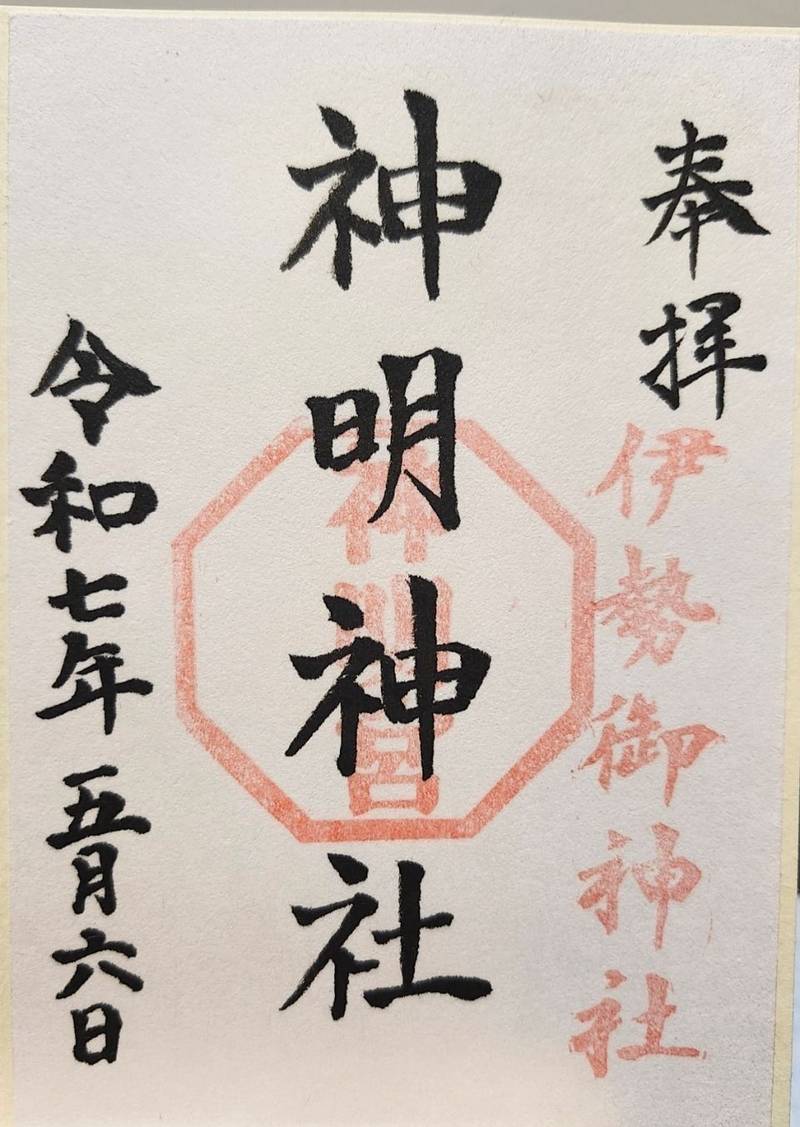 奉拝
伊勢御神社
神明神社
令和七年五月六日